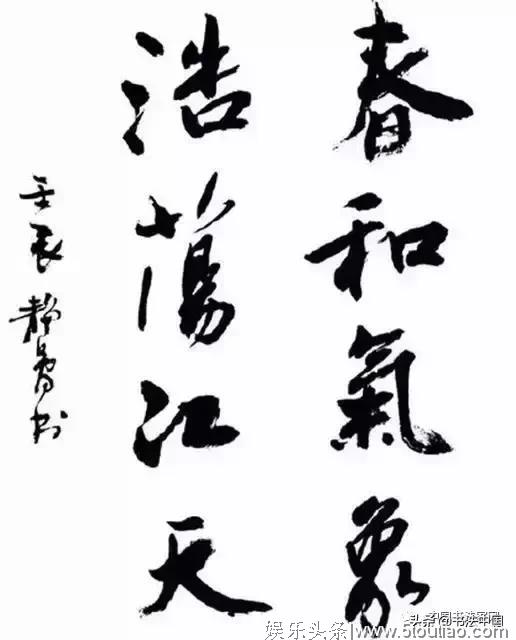 春和氣象
浩蕩江天
壬辰 靜
头条@书法中国
娱乐头条|www.5toutiao.com